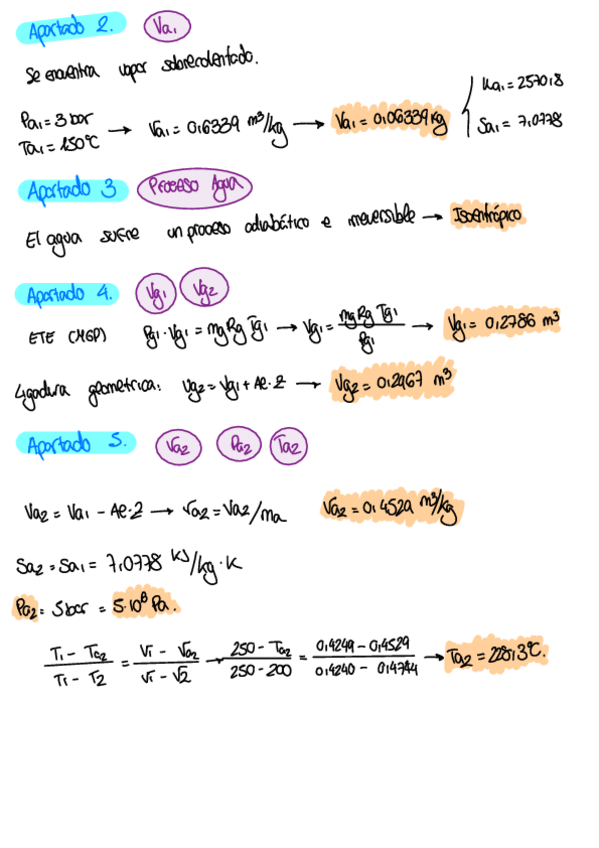 Apartado 2. Va₁
Se encuentra vapor sobrecalentado.
Pa₁ = 3 bar
Ta₁ = 150°C → va₁ = 0,6339 m³/kg → Va₁ = 0,06339 kg
ua₁ = 2570,8
sa₁ = 7,0778
Apartado 3 Proceso Agua
El agua sufre un proceso adiabático e irreversible → Isoentrópico
Apartado 4. Vg₁ Vg₂
ETE (MGP) Pg₁ · Vg₁ = mg Rg Tg₁ → Vg₁ = mg Rg Tg₁ / Pg₁ → Vg₁ = 0,2786 m³
Ligadura geometrica: Vg₂ = Vg₁ + Ae·z → Vg₂ = 0,2967 m³
Apartado 5. Va₂ Pa₂ Ta₂
Va₂ = Va₁ - Ae·z → va₂ = Va₂/ma va₂ = 0,4529 m³/kg
Sa₂ = Sa₁ = 7,0778 KJ/kg·K
Pa₂ = 5 bar = 5·10⁸ Pa.
T₁ - Ta₂ / T₁ - T₂ = v₁ - va₂ / v₁ - v₂ → 250 - Ta₂ / 250 - 200 = 0,4249 - 0,4529 / 0,4240 - 0,4744 → Ta₂ = 228,3°C.